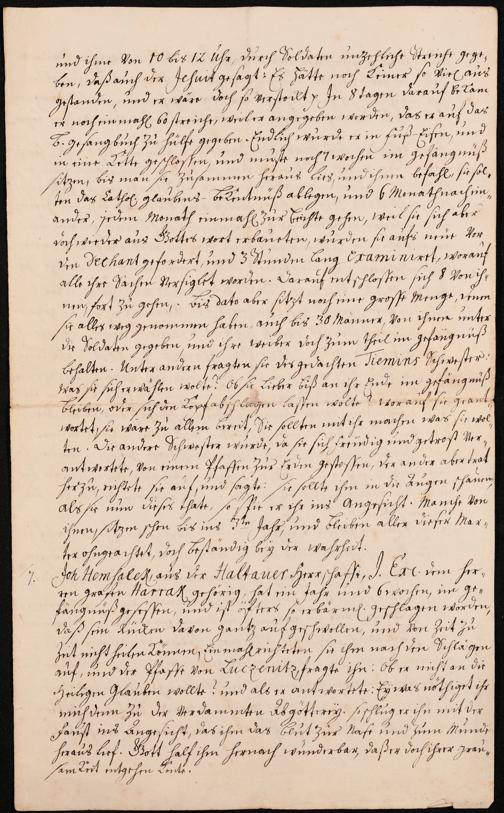 und ihme von 10 bis 12 Uhr, durch Soldaten unzehliche Streiche gege-
ben, daß auch der Jesuit gesagt: Es hätte noch keiner so viel aus
gestanden, und er wäre doch so verstockt. In 8 tagen darauf bekam
er noch einmahl 60 streiche, weil er angegeben worden, das er auf das
B. gesangbuch zu hülfe gegeben. Endlich wurde er in fuß Eisen, und
in eine Kette geschlossen, und muste noch 7 wochen im gefängnüß
sitzen, bis man sie zusammen heraus lies, und ihnen befahl, sie sol-
ten das Cathol. glaubens-bekentnüß ablegen, und 6 Monath nachein-
ander, jeden Monath einmahl zur beichte gehen, weil sie sich aber
doch wieder aus Gottes wort erbaueten, wurden sie aufs neue vor
den Dechant gefordert, und 3 Stunden lang Examiniret, worauf
alle ihre Sachen versiglet worden. Darauf entschlossen sich 8 von ih-
nen, fort zu gehen. bis dato aber sitzt noch eine grosse Menge, denen
sie alles weg genommen haben, auch bis 30 Männer, von ihnen unter
die Soldaten gegeben, und ihre weiber doch zum theil im gefängnüß
behalten. Unter andern fragten sie des gedachten Schwester:
was sie sich erwählen wolte? Ob sie lieber biß an ihr Ende im gefängnüß
bleiben, oder sich den Kopf abschlagen lassen wolte? worauf sie geant-
wortet, sie wäre zu allem bereit, Sie sollten mit ihr machen was sie wol-
ten. Die andere Schwester wurde, da sie sich freudig und getrost ver-
antwortete, von einem Pfaffen zur Erden gestossen, der ander aber trat
herzu, richtete sie auf, und sagte: sie sollte ihm in die Augen schauen,
als sie nun dieses thate, so spie er ihr ins Angesicht. Manche von
ihnen, sitzen schon bis ins Jahr, und bleiben aller dieser Mar-
ter ohngeachtet, doch beständig bey der wahrheit.
7. Joh Hemsaleck, aus der Haltauer Herrschafft, J. Exc. dem Her-
ren grafen Harrak gehörig, hat ein Jahr und 6 wochen, im ge-
fängnüß gesessen, und ist öfters so erbärml. geschlagen worden,
daß sein Rücken davon gantz aufgeschwollen, und von Zeit zu
Zeit nicht heilen können, Einmahl richteten sie ihn nach den Schlägen
auf, und der Pfaffe von fragte ihn: Ob er nicht an die
heiligen glauben wollte? und als er antwortete: Ey was nöthiget ihr
mich denn zu der verdammten Abgötterey. schlug er ihn mit der
Faust ins Angesicht, das ihm das Blut zur Nase und zum Munde
heraus lief. Gott half ihm hernach wunderbar, daß er doch ihrer grau-
samkeit entgehen konte.